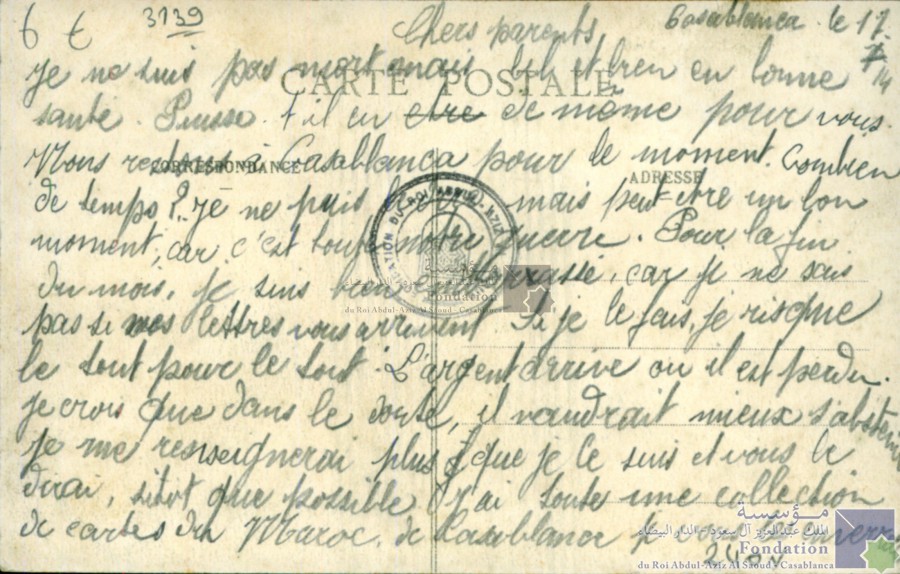 6 € 3139
Chers parents, Casablanca le 17
7/14
CARTE POSTALE
Je ne suis pas mort mais bel et bien en bonne
santé. Puisse-t-il en être de même pour vous.
CORRESPONDANCE
ADRESSE
Nous restons à Casablanca pour le moment. Combien
de temps? Je ne puis le mais peut-être un bon
moment, car c'est toute notre guerre. Pour la fin
du mois, je suis bien embarrassé, car je ne sais
pas si mes lettres vous arrivent. Si je le fais, je risque
le tout pour le tout. L'argent arrive ou il est perdu.
Je crois que dans le doute, il vaudrait mieux s'abstenir
je me renseignerai plus que je le suis et vous le
dirai, sitôt que possible. J'ai toute une collection
de cartes du Maroc, de Casablanca
FONDATION DU ROI ABDUL-AZIZ
Fondation
du Roi Abdul-Aziz Al Saoud - Casablanca
مؤسسة
الملك عبد العزيز آل سعود - الدار البيضاء
Fondation
du Roi Abdul-Aziz Al Saoud - Casablanca